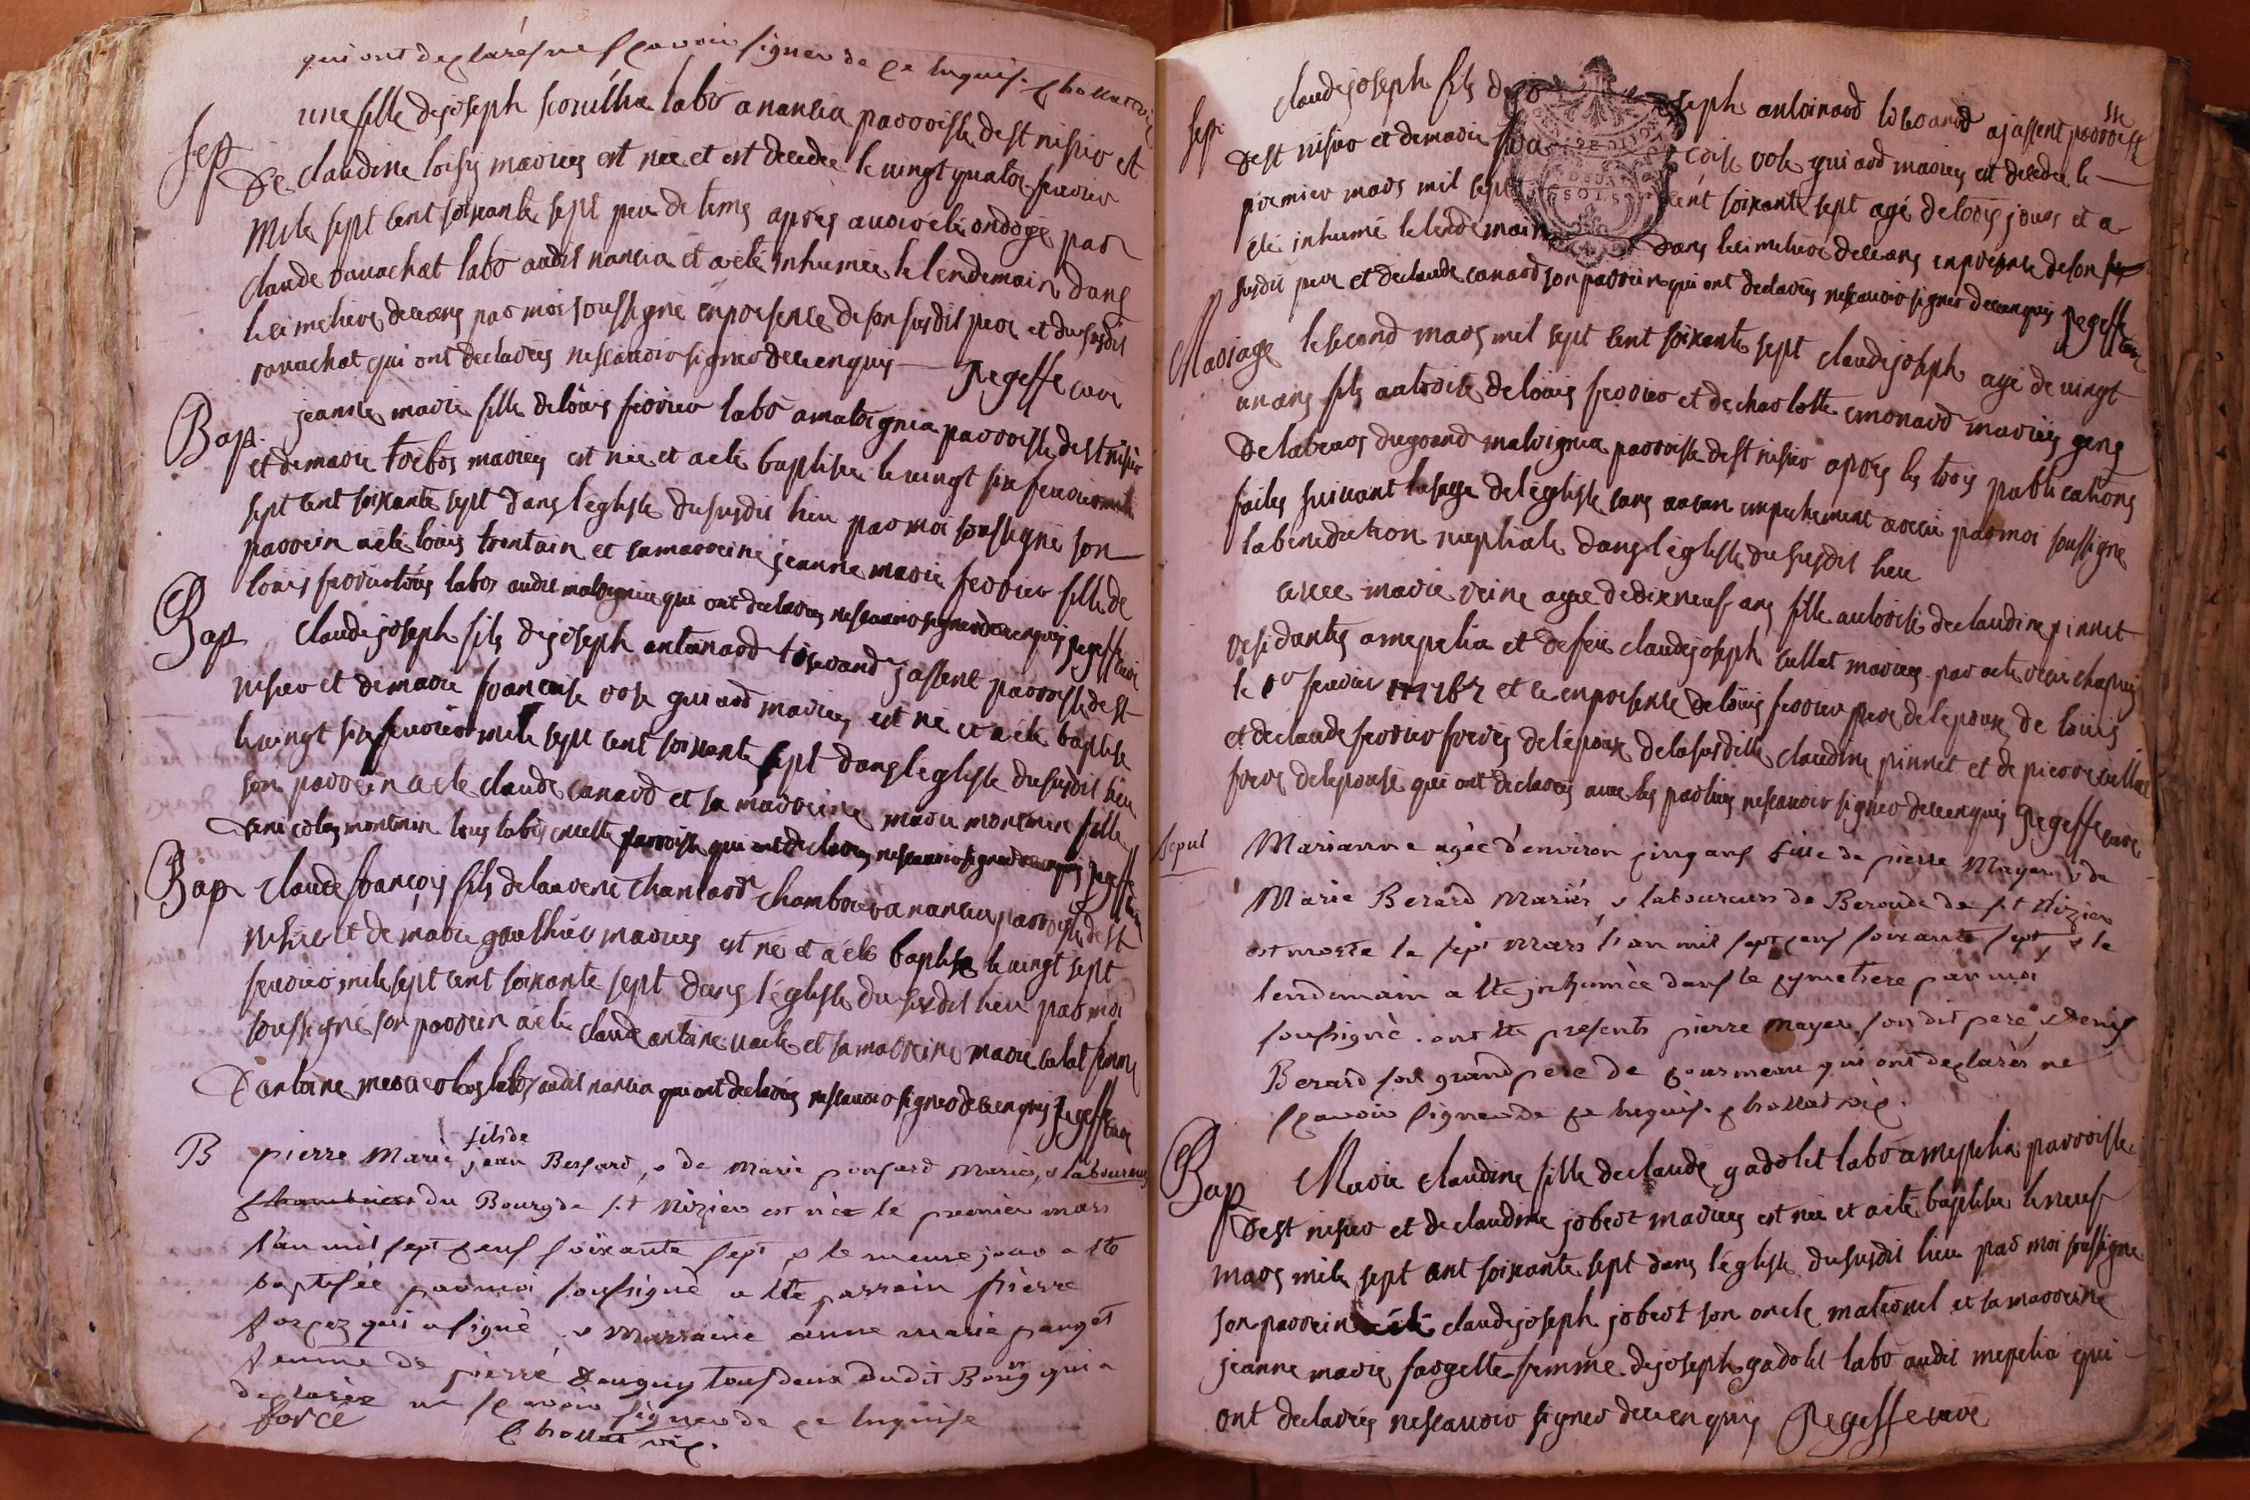 qui ont déclarés ne sçavoir signer de ce enquis. Chollat vic
Sep
une fille de joseph labo a nancia parroisse de st nisier et
de claudine loisy mariés est née et est decedée le vingt quatre fevrier
mile sept cent soixante sept peu de tems après avoir été ondoyé par
claude ravachat labo audit nancia et a eté inhumée le lendemain dans
le cimetiere de ceans par moi soussigné en presence de son susdit pere et du susdit
ravachat qui ont declarés ne scavoir signer de ce enquis Regeffe curé
Bap.
jeanne marie fille de loüis ferrier labo a parroisse de st nisier
et de marie mariés est née et a eté baptisée le vingt six fevrier mile
sept cent soixante sept dans l'eglise du susdit lieu par moi soussigné son
parrein a eté loüis trontain et sa marreine jeanne marie ferrier fille de
loüis ferrier labo audit qui ont declarés ne scavoir signer de ce enquis Regeffe curé
Bap
claude joseph fils de joseph antoinard a jassent parroisse de st
nisier et de marie francoise rose guiard mariés est né et a eté baptisé
le vingt six fevrier mile sept cent soixante sept dans l'eglise du susdit lieu
son parrein a eté claude canard et sa marreine marie montmin fille
parroisse qui ont declarés ne scavoir signer de ce enquis Regeffe curé
Bap
claude françois fils de laurent chanlard chambrier a nancia parroisse de st
nisier et de marie gauthier mariés est né et a eté baptisé le vingt sept
fevrier mile sept cent soixante sept dans l'église du susdit lieu par moi
soussigné son parrein a eté claude antoine et sa marreine marie calat femme
d'antoine labo audit nancia qui ont declarés ne scavoir signer de ce enquis Regeffe curé
B
fils de
pierre Marie jean Berfard, & de Marie ponsard Mariés, & laboureurs
chambriers du Bourg de st Nizier est née le premier mars
l'an mil sept cens soixante sept & le meme jour a ete
baptisée par moi soussigné a ete parrain pierre
forcez qui a signé & Marraine anne marie panget
femme de pierre tous deux dudit Bourg qui a
declarée ne sçavoir signer de ce enquise
force
Chollat vic.
sepr
claude joseph fils de joseph antoinard a jassent parroisse
de st nisier et de marie francoise rose guiard mariés est decedé le
premier mars mil sept cent soixante sept agé de trois jours et a
été inhumé le lendemain dans le cimetiere de ceans en presence de son
susdit pere et de claude canard son parrein qui ont declarés ne scavoir signer de ce enquis Regeffe curé
Mariage
le second mars mil sept cent soixante sept claude joseph agé de vingt
un ans fils autorisé de loüis ferrier et de charlotte emonard mariés gens
de labeur du grand parroisse de st nisier après les trois publications
faites suivant l'usage de l'eglise sans aucun empechement a reçu par moi soussigné
la benediction nuptiale dans l'eglise du susdit lieu
avec marie reine agée de dix neuf ans fille autorisée de claudine pinnet
residante a mepelia et de feu claude joseph cullat mariés par acte reçu
le 1er fevrier 1767 et ce en presence de loüis ferrier pere de l'epoux de loüis
et de claude ferrier freres de l'époux de la susdite claudine pinnet et de pierre cullat
frere de l'epouse qui ont declarés avec les parties ne scavoir signer de ce enquis Regeffe curé
sepul
Marianne agée d'environ cinq ans fille de pierre Mayer & de
Marie Berard Mariés, & laboureurs de Beroude de st Nizier
est morte le sept Mars l'an mil sept cens soixante sept, & le
lendemain a ete inhumée dans le cymetiere par moi
soussigné. ont ete presents pierre Mayer son dit pere & Denis
Berard son grand pere de cousmeau qui ont declarés ne
sçavoir signer de ce enquis. Chollat vic.
Bap
Marie claudine fille de claude gadolet labo a mepelia parroisse
de st nisier et de claudine jobert mariés est née et a eté baptisée le neuf
mars mile sept cent soixante sept dans l'église du susdit lieu par moi soussigné
son parrein a été claude joseph jobert son oncle maternel et sa marreine
jeanne marie fargette femme de joseph gadolet labo audit mepelia qui
ont declarés ne scavoir signer de ce enquis Regeffe curé